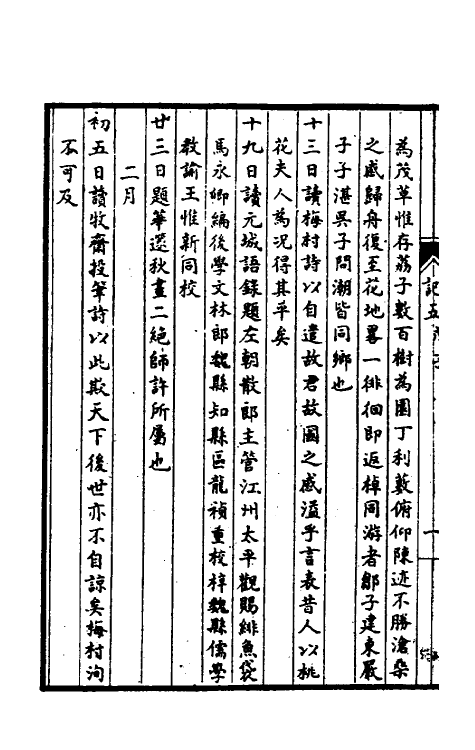 為茂草惟存荔子數百樹為園丁利藪俯仰陳迹不勝滄桑
之感歸舟復至花地畧一徘徊即返棹同游者鄒子建東嚴
子子湛吳子問潮皆同鄉也
十三日讀梅村詩以自遣故君故國之感溢乎言表昔人以桃
花夫人為况得其平矣
十九日讀元城語錄題左朝散郎主管江州太平觀賜緋魚袋
馬永卿編後學文林郎魏縣知縣區龍禎重校梓魏縣儒學
教諭王惟新同校
廿三日題華選秋畫二絕師許所屬也
二月
初五日讀牧齋投筆詩以此欺天下後世亦不自諒矣梅村洵
不可及
記五